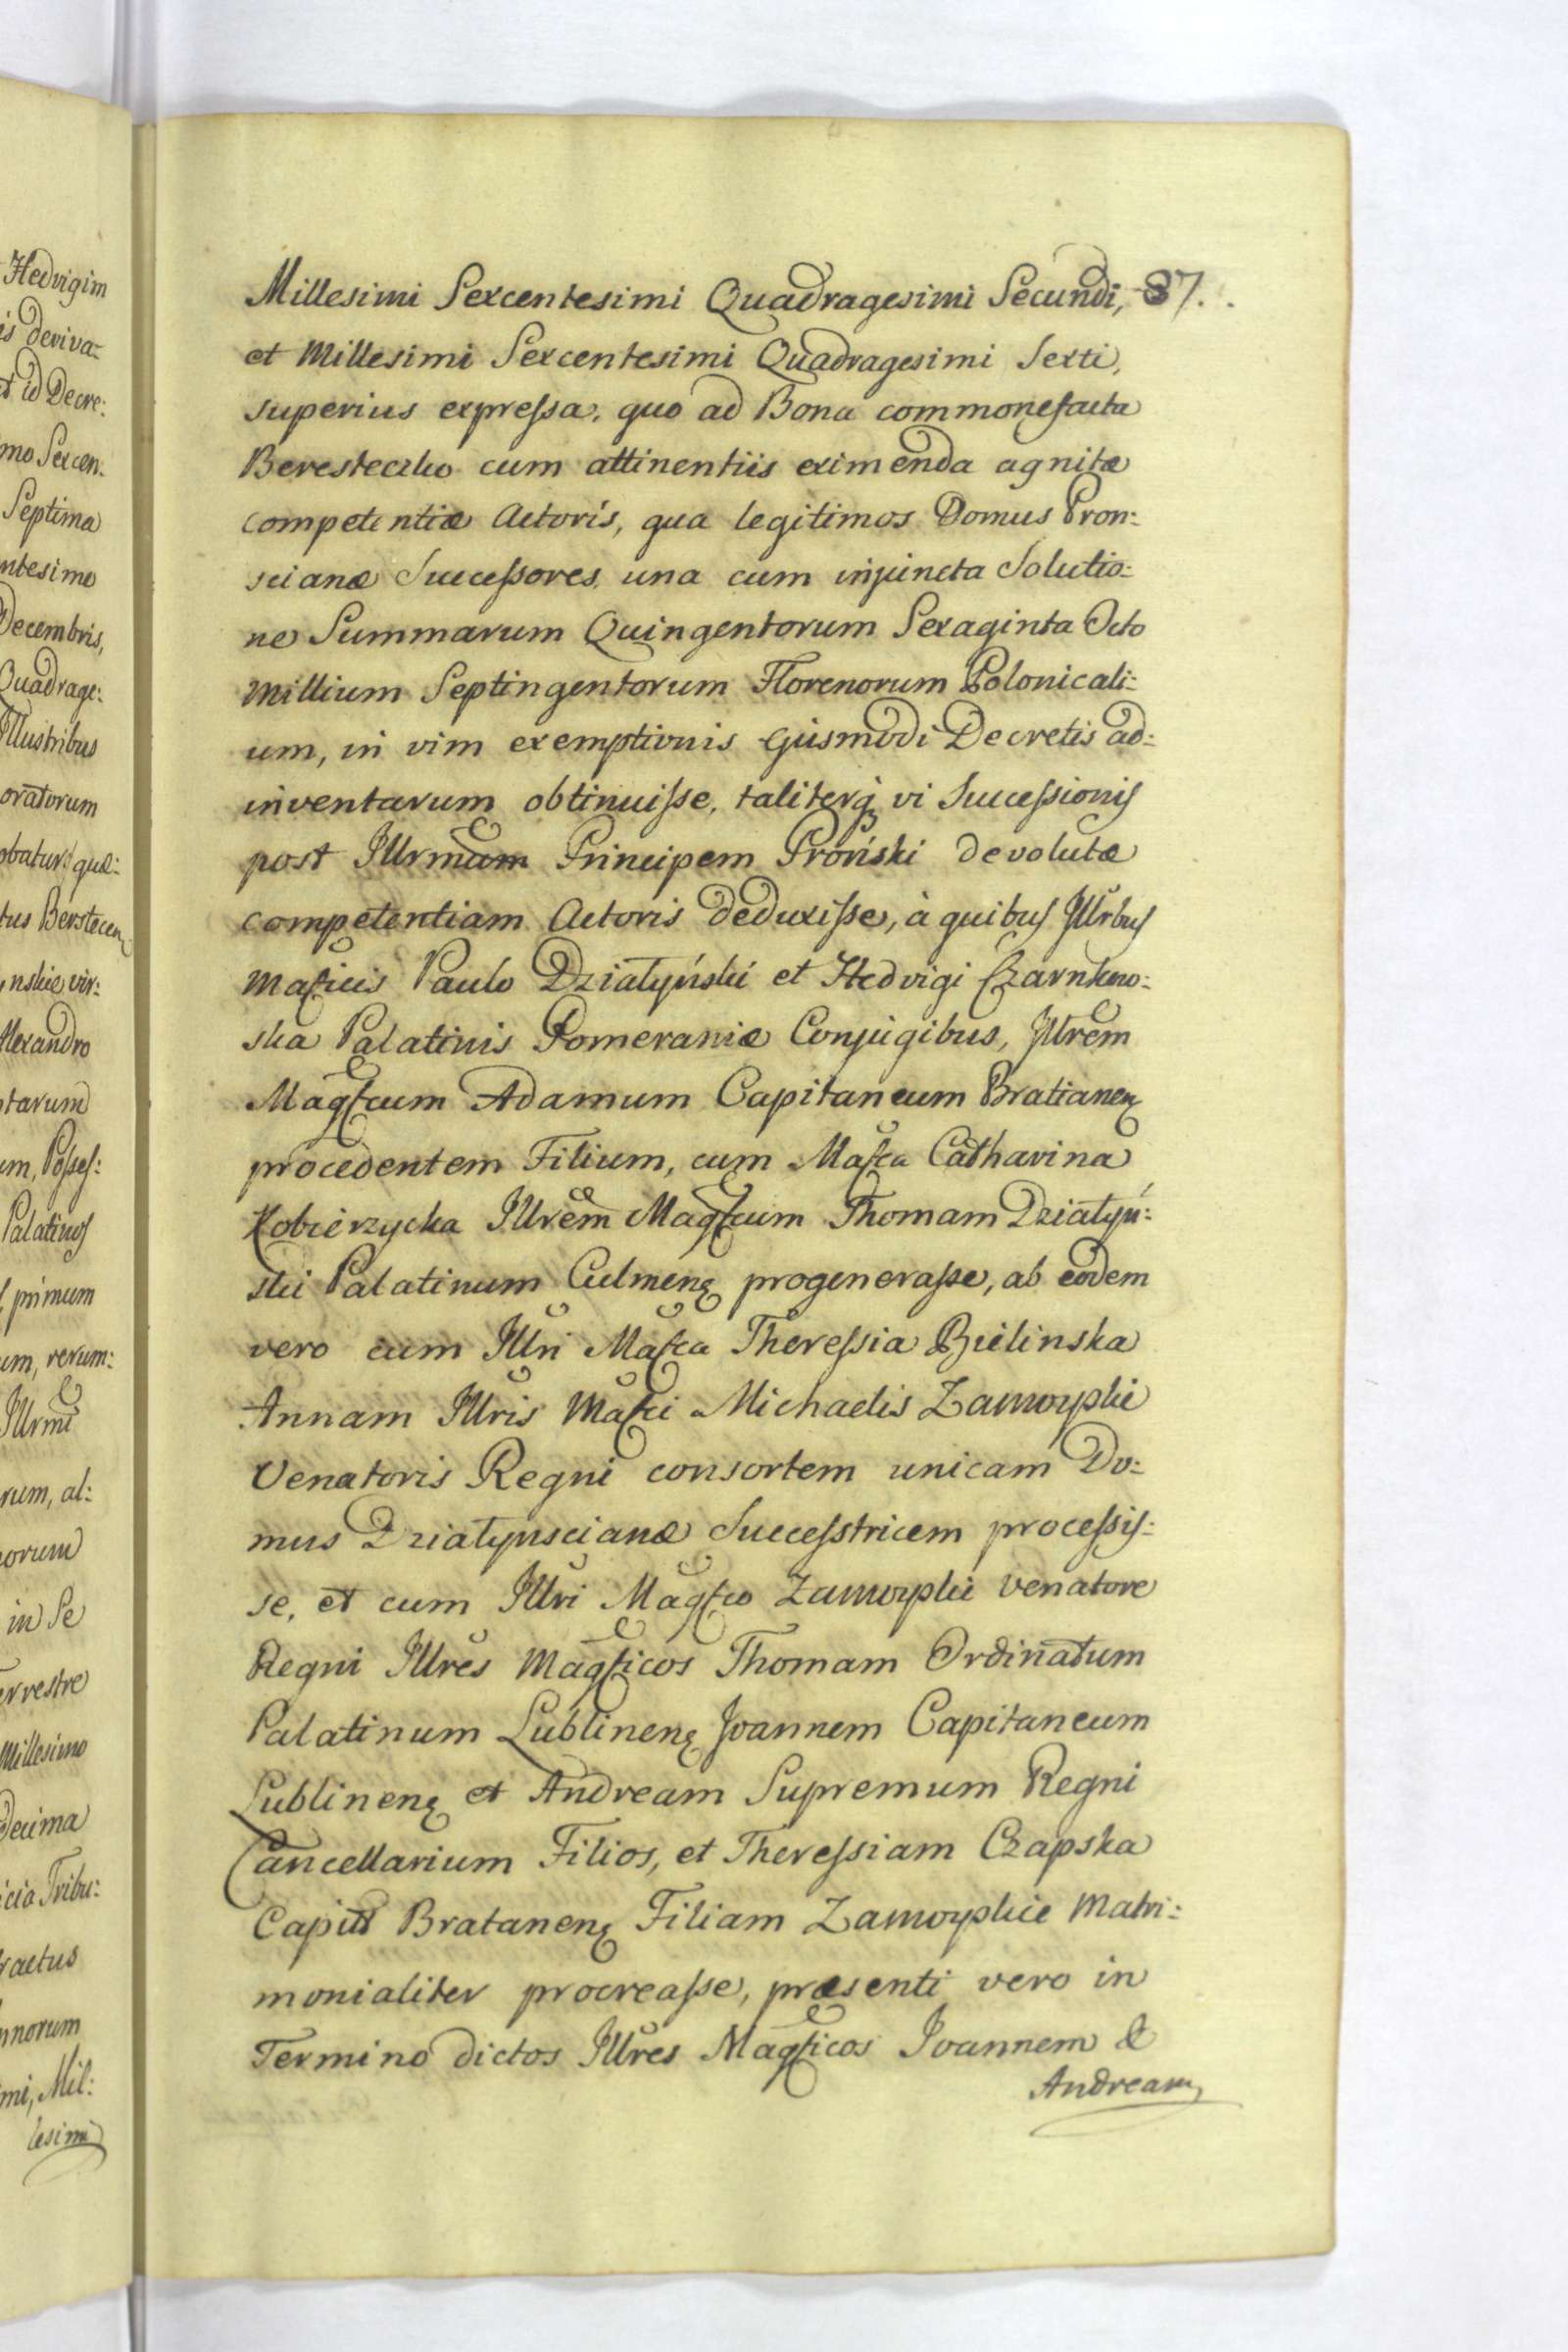 Hedvigim
is deriva:
t id Decre:
mo Sexcen:
Septima
ntesimo
Decembris,
Quadrage:
Illustribus
oratorum
obatur: quæ:
tus Berstecen
nskie vir:
Alexandro
ntarum
um, Posses:
Palatinos
primum
um, rerum:
Illrmi
rum, al:
norum
in Se
Terrestre
Millesimo
Decima
icia Tribu:
ractus
nnorum
mi, Mil:
lesimi
Millesimi Sexcentesimi Quadragesimi Secundi, 87.
et Millesimi Sexcentesimi Quadragesimi Sexti,
superius expressa, quo ad Bona commonefacta
Beresteczko cum attinentiis eximenda agnitæ
competentiæ Actoris, qua legitimos Domus Pron:
scianæ Successores, una cum injuncta Solutio:
ne Summarum Quingentorum Sexaginta Octo
Millium Septingentorum Florenorum Polonicali:
um, in vim exemptionis ejusmodi Decretis ad:
inventarum obtinuisse, taliterq vi Successionis
post Illrmam Principem Proński devolutæ
competentiam Actoris deduxisse, à quibus Illrbus
Maficis Paulo Działyński et Hedvigi Czarnkow:
ska Palatinis Pomeraniæ Conjugibus, Illrem
Magfcum Adamum Capitaneum Bratianen
procedentem Filium, cum Mafca Catharina
Kobierzycka Illrem Magfcum Thomam Działyń:
ski Palatinum Culmen progenerasse, ab eodem
vero cum Illri Mafca Theressia Bielinska
Annam Illris Mafci Michaelis Zamoyskie
Venatoris Regni consortem unicam Do:
mus Działynscianæ Successtricem processis:
se, et cum Illri Magfco Zamoyskie Venatore
Regni Illres Magficos Thomam Ordinatum
Palatinum Lublinen Joannem Capitaneum
Lublinen et Andream Supremum Regni
Cancellarium Filios, et Theressiam Czapska
Capitt Bratanen Filiam Zamoyskie Matri:
monialiter procreasse, præsenti vero in
Termino dictos Illres Magficos Joannem &
Andream